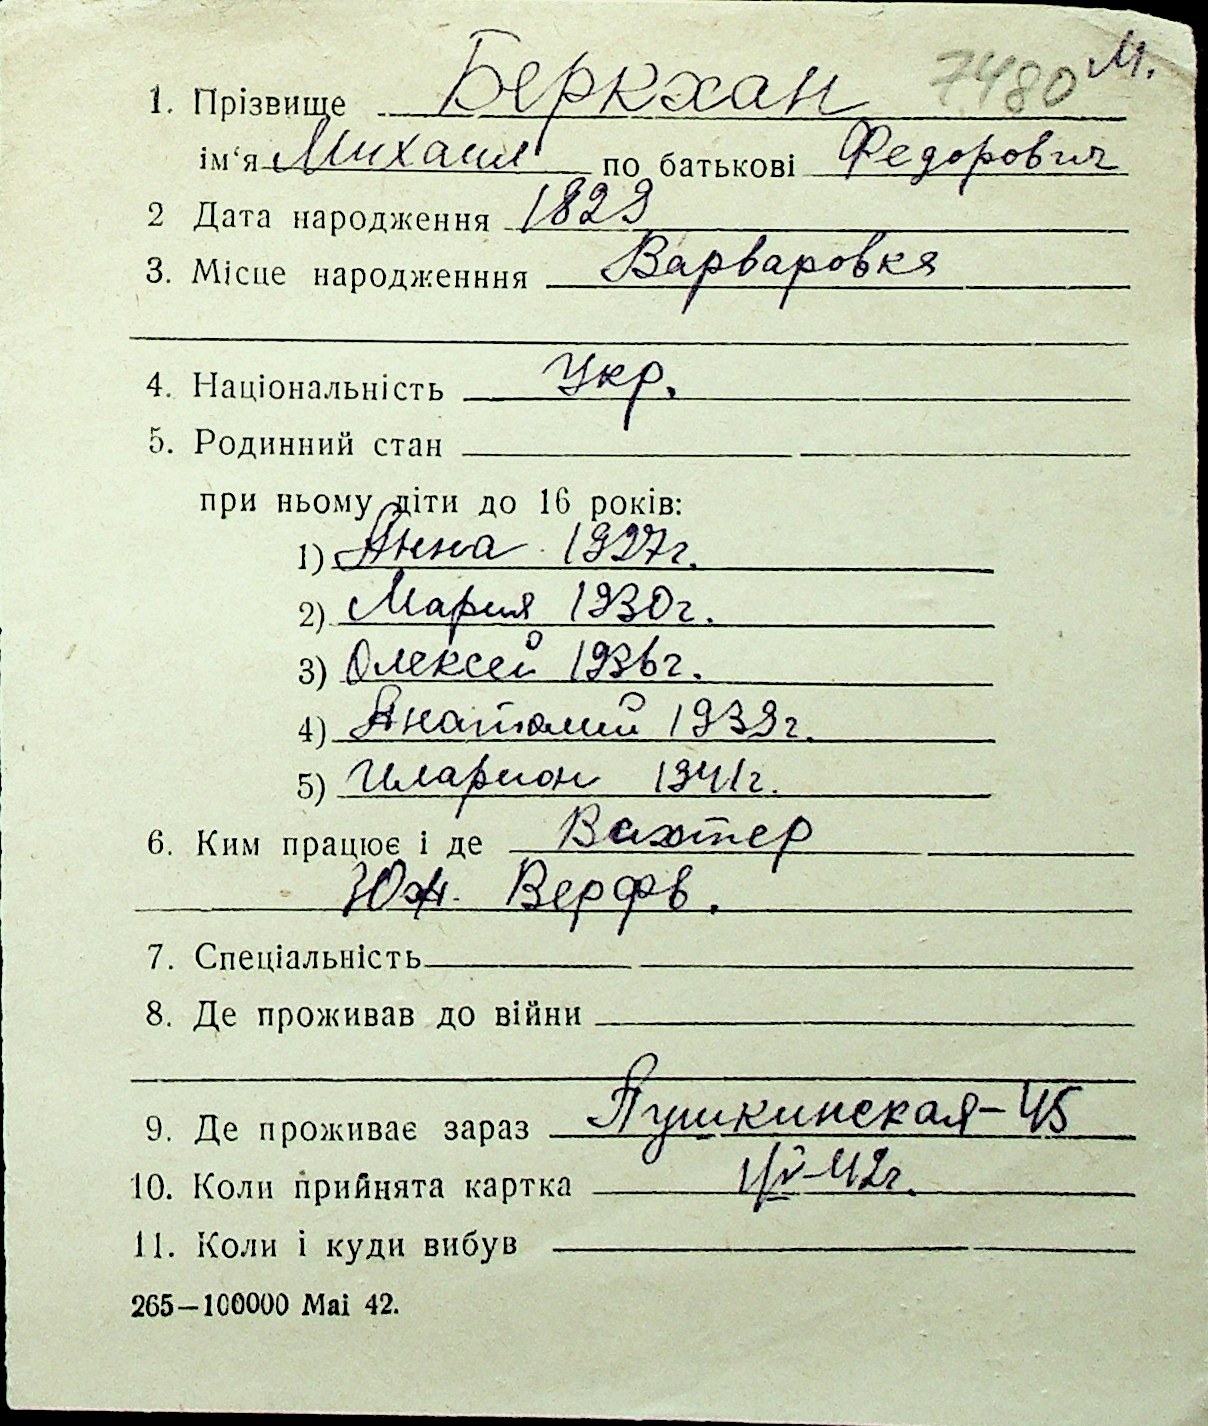 7480 М.
1. Прізвище Беркхан
ім‘я Михаил по батькові Федорович
2 Дата народження 1829
3. Місце народженння Варваровка
4. Національність Укр.
5. Родинний стан
при ньому діти до 16 років:
1) Анна 1927г.
2) Мария 1930г.
3) Олексей 1936г.
4) Анатолий 1939г.
5) Иларион 1941г.
6. Ким працює і де Вахтер
Юж. Верфь.
7. Спеціальність
8. Де проживав до війни
9. Де проживає зараз Пушкинская-45
10. Коли прийнята картка
11. Коли і куди вибув
265—100000 Mai 42.